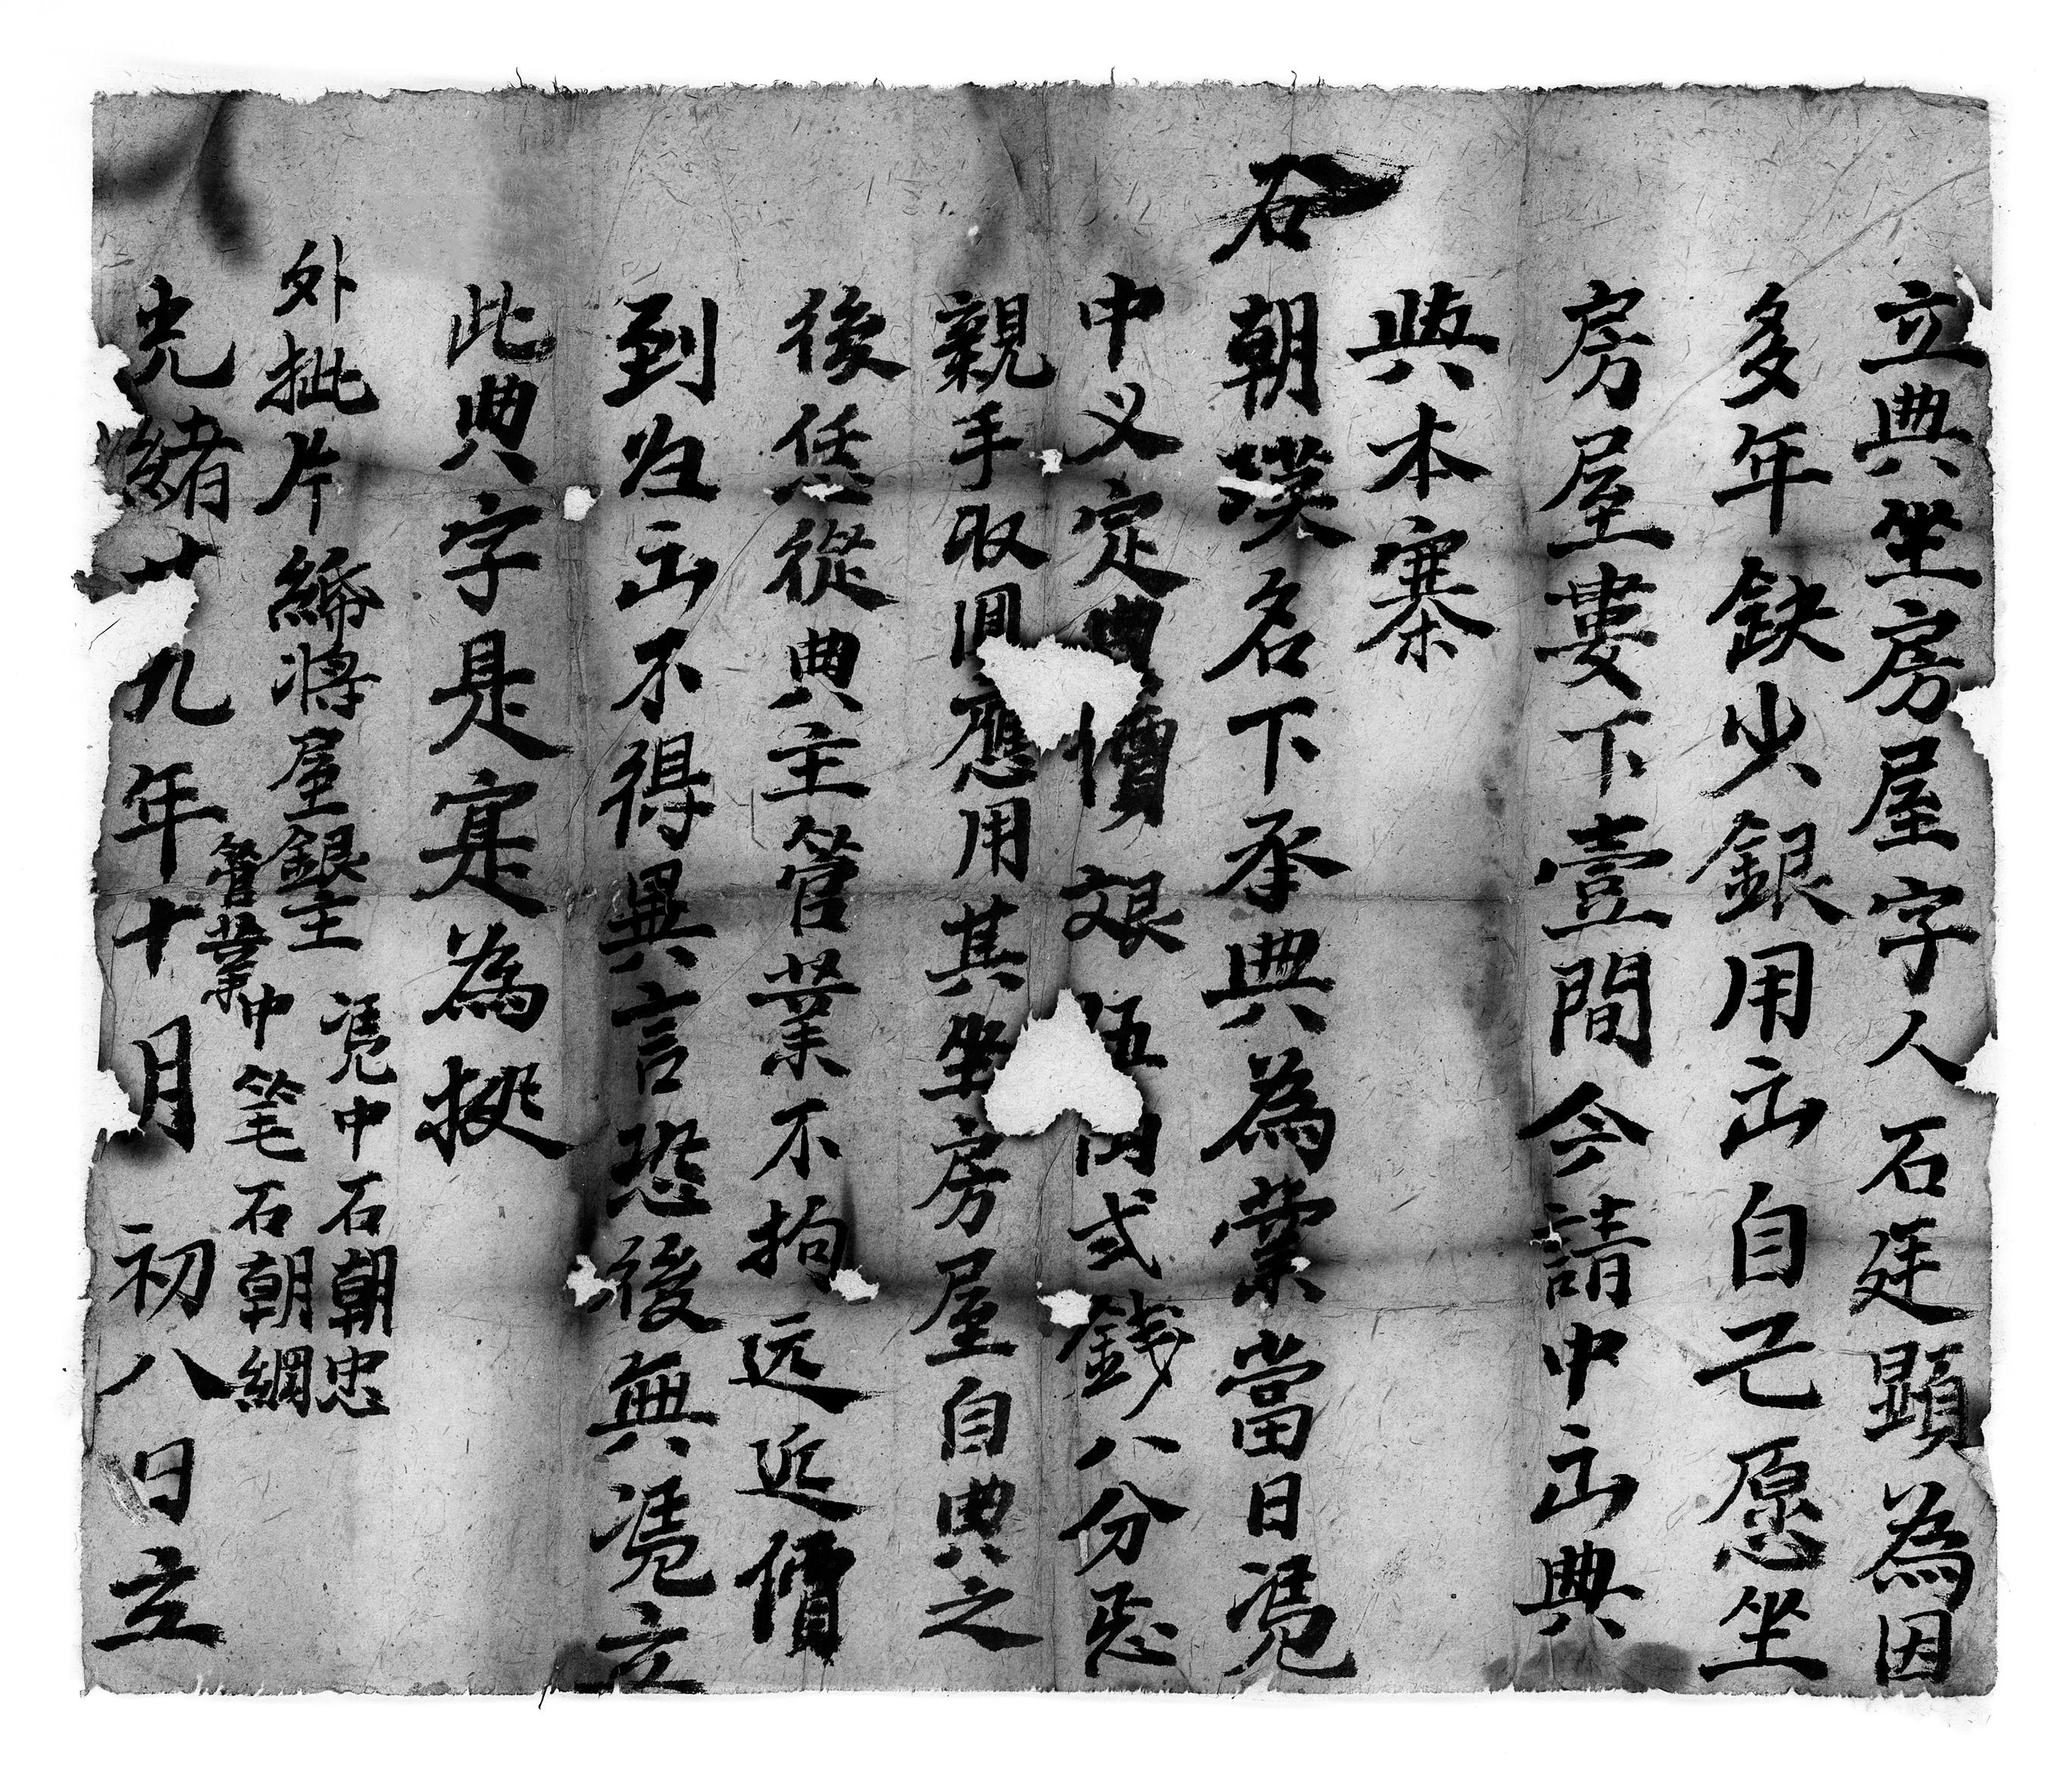 立典坐房屋字人石廷顕為因
多年缺少銀用出自己愿坐
房屋婁下壹間今請中出典
與本寨
石朝漢名下承典為業當日凴
中义定典價艮伍両弍錢八分恁
親手収囬應用其坐房屋自典之
後恁從典主管業不拘远近價
到归出不得異言恐後無凴立
此典字是寔為㨿
外批将屋銀主
管業
凴中石朝忠
中笔石朝綱
光緒廿九年十月初八日立